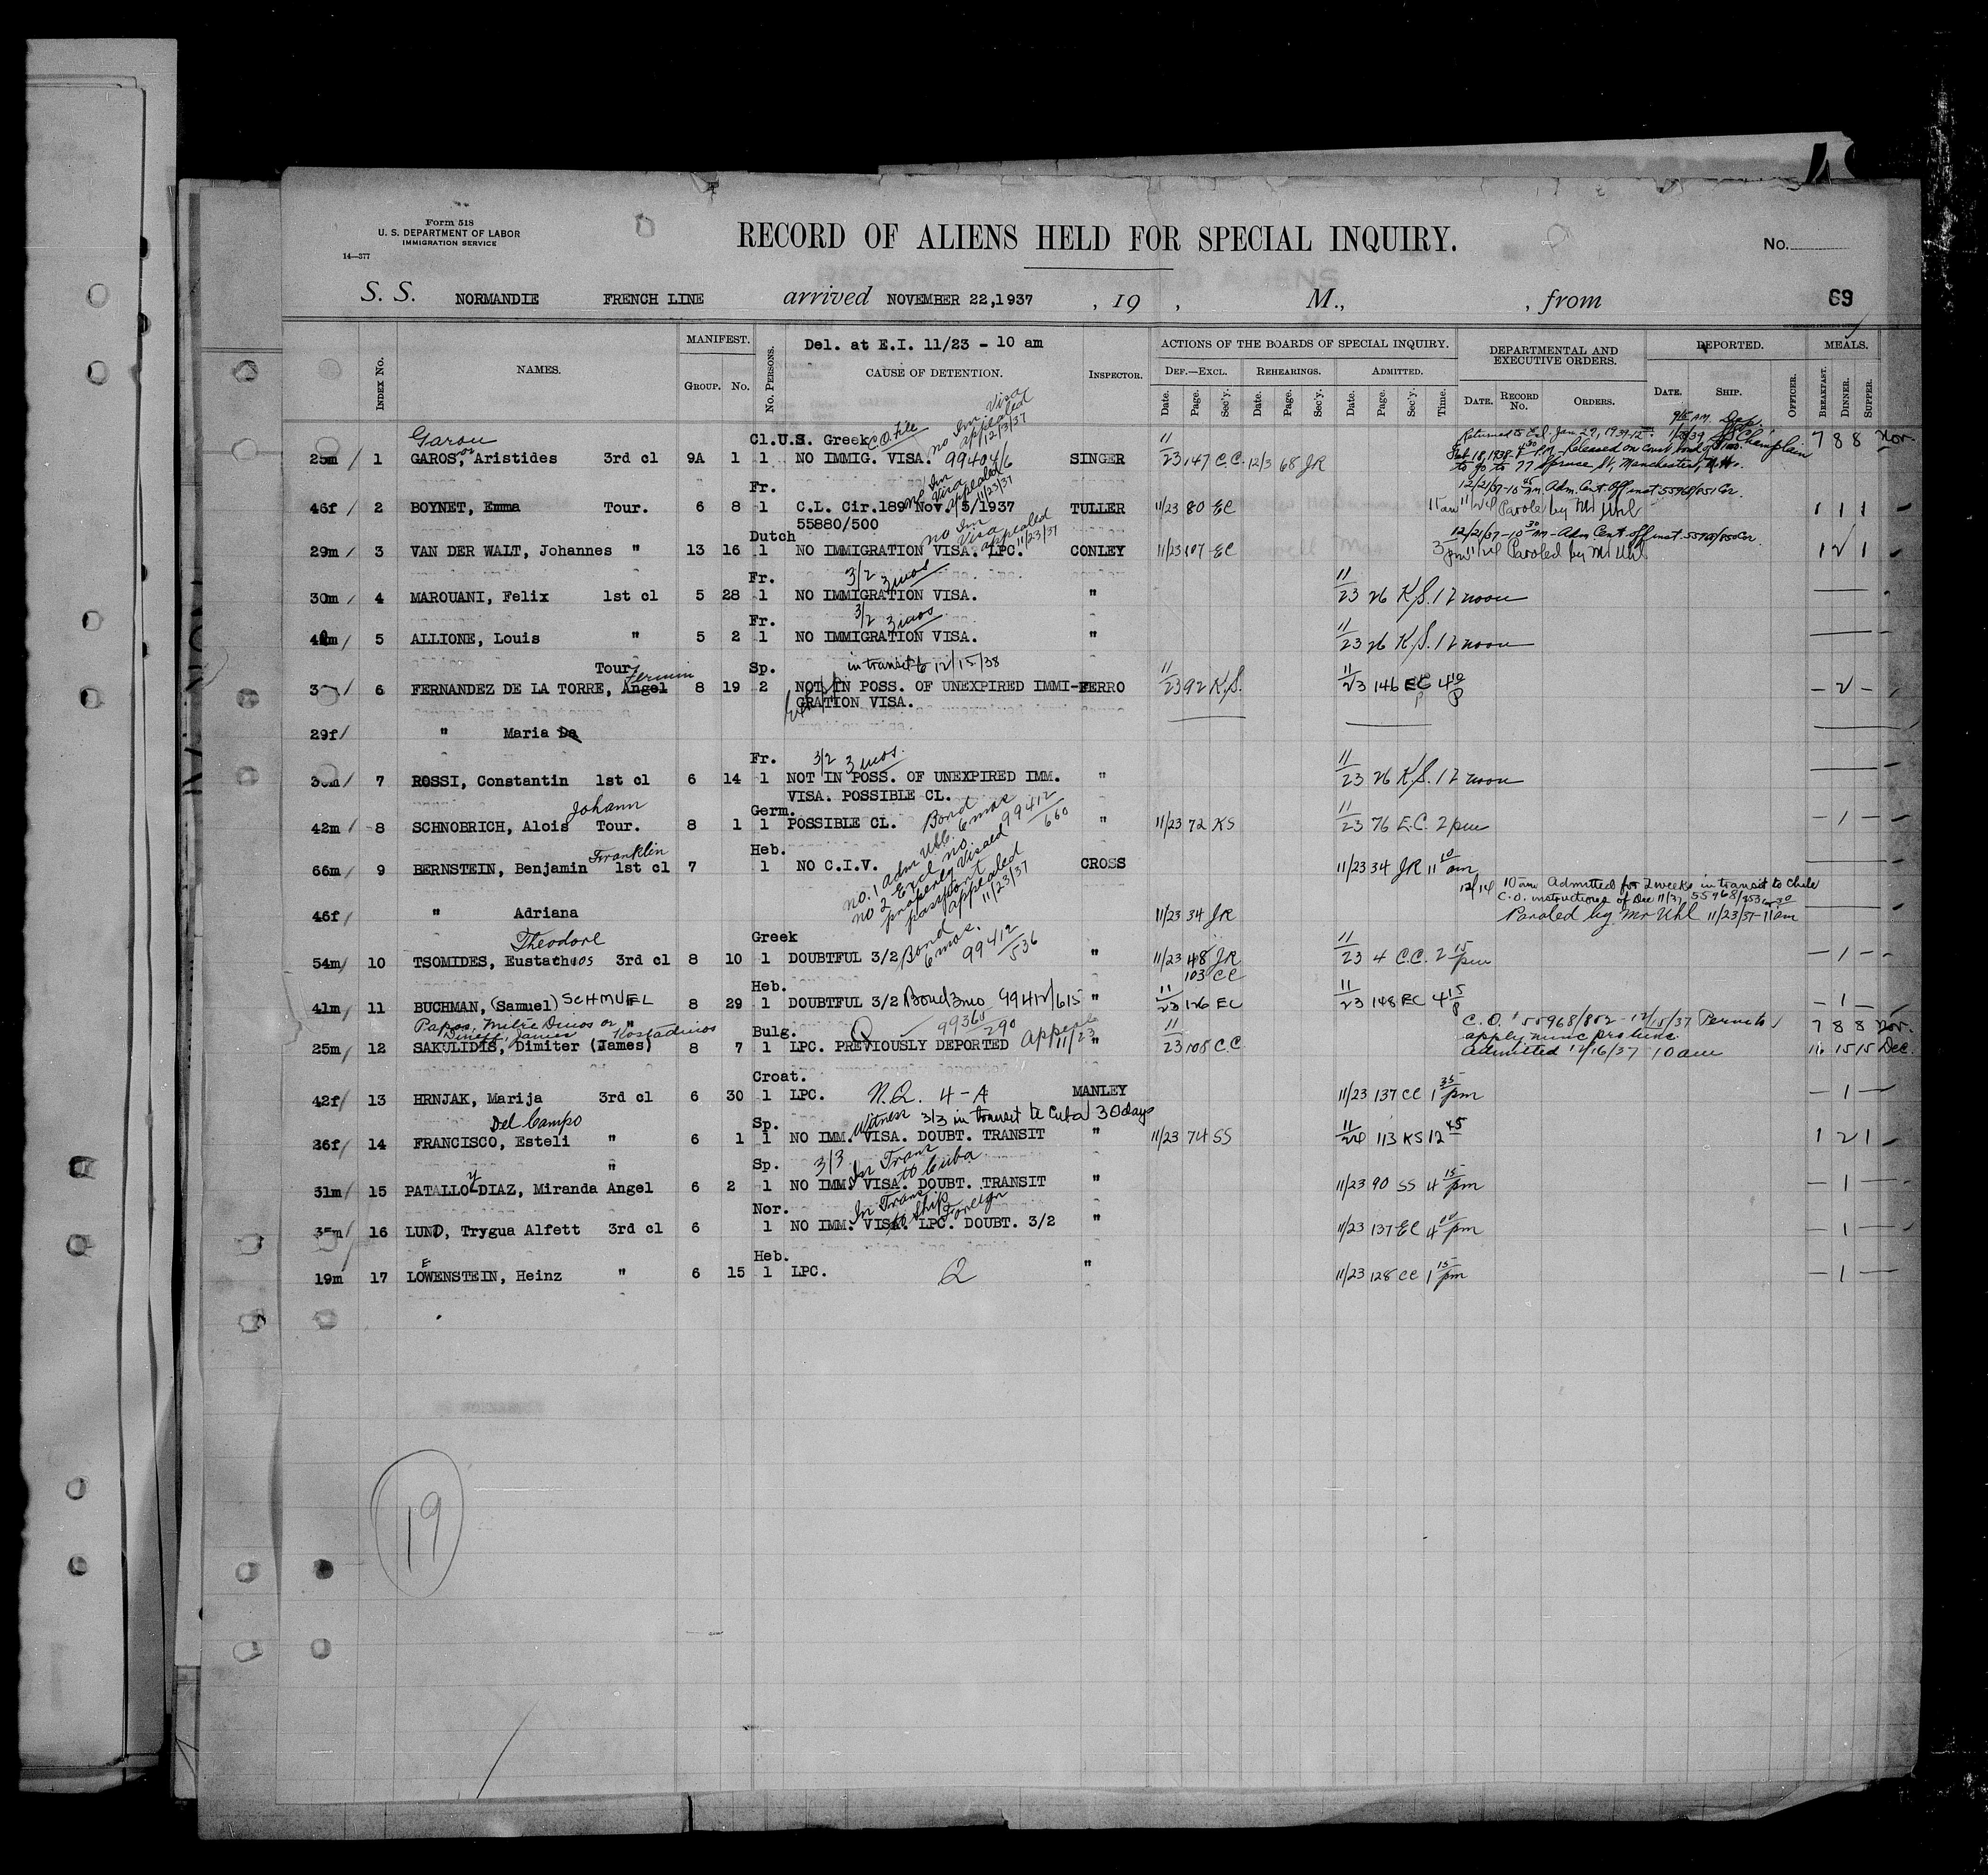 Form 518
U. S. DEPARTMENT OF LABOR
IMMIGRATION SERVICE
14—377
RECORD OF ALIENS HELD FOR SPECIAL INQUIRY.
No.
S. S. NORMANDIE FRENCH LINE arrived NOVEMBER 22,1937 , 19 , M., , from 69
INDEX No. NAMES. MANIFEST. GROUP. No. No. PERSONS. Del. at E.I. 11/23 - 10 am CAUSE OF DETENTION. INSPECTOR. ACTIONS OF THE BOARDS OF SPECIAL INQUIRY. DEPARTMENTAL AND EXECUTIVE ORDERS. DEPORTED. MEALS.
DEF.—EXCL. REHEARINGS. ADMITTED.
Date. Page. Sec'y. Date. Page. Sec'y. Date. Page. Sec'y. Time. DATE. RECORD No. ORDERS. DATE. SHIP. OFFICER. BREAKFAST. DINNER. SUPPER.
Garou Cl.U.S. Greek C.O. File no Im Visa appealed 12/3/37
25m 1 GAROS, or Aristides 3rd cl 9A 1 1 NO IMMIG. VISA. 99404/6 SINGER 11/23 147 C.C. 12/3 68 JR 7 8 8 Nov.
Returned to E.I. Jan 27, 1939
Feb 18, 1938 - 4 30 P.M. Released on court bond of $1000.
to go to 77 Spruce St, Manchester, N.H.
Champlain
Fr. no Im Visa appealed 11/23/37
12/21/37 - 10 45 AM. Adm. Cent. Off inst 55968/851 Cor.
46f 2 BOYNET, Emma Tour. 6 8 1 C.L. Cir.189 Nov. 5/1937 TULLER 11/23 80 EC 11 am 11/24 Parole by Mr Uhl 1 1 1
55880/500
Dutch no Im Visa appealed 11/23/37
12/21/37 - 10 30 AM - Adm Cent off inst.
29m 3 VAN DER WALT, Johannes " 13 16 1 NO IMMIGRATION VISA. LPC. CONLEY 11/23 107 EC 3 pm 11/24 Paroled by Mr Uhl 1 2 1
Fr. 3/2 3 mos
30m 4 MAROUANI, Felix 1st cl 5 28 1 NO IMMIGRATION VISA. " 11/23 26 K.S. 12 noon
Fr. 3/2 3 mos
5 ALLIONE, Louis " 5 2 1 NO IMMIGRATION VISA. " 11/23 26 K.S. 12 noon
Tour Fermin Sp. in transit to 12/15/38
6 FERNANDEZ DE LA TORRE, Angel 8 19 2 NOT IN POSS. OF UNEXPIRED IMMI- FERRO 11/23 92 K.S. 11/23 146 EC 4 10 P — 2 —
GRATION VISA.
29f " Maria De
Fr. 3/2 3 mos.
7 ROSSI, Constantin 1st cl 6 14 1 NOT IN POSS. OF UNEXPIRED IMM. " 11/23 26 K.S. 12 noon
VISA. POSSIBLE CL.
Johann Germ. Bond 6 mos 99412/660
42m 8 SCHNOBRICH, Alois Tour. 8 1 1 POSSIBLE CL. " 11/23 72 KS 11/23 76 E.C. 2 pm — 1 —
Franklin Heb.
66m 9 BERNSTEIN, Benjamin 1st cl 7 1 NO C.I.V. CROSS 11/23 34 JR 11 10 am
no. 1 adm
no 2 Excl no properly visaed passport appealed 11/23/37
12/14 10 am Admitted for 2 weeks in transit to Chile
C.O. instructions of Dec 11/37
46f " Adriana 11/23 34 JR Paroled by Mr Uhl 11/23/37 - 11 am
Theodore Greek Bond 6 mos. 99412/536
54m 10 TSOMIDES, Eustathios 3rd cl 8 10 1 DOUBTFUL 3/2 " 11/23 48 JR 11/23 4 C.C. 2 15 pm — 1 —
103 CC
Heb.
41m 11 BUCHMAN, (Samuel) SCHMUEL " 8 29 1 DOUBTFUL 3/2 Bond 3 mo 99412/615 " 11/23 126 EC 11/23 148 EC 4 15 P — 1 —
Papas, Mitre Dinos or
Dineff, James Kostadinos Bulg. Q 99360/290 Appeal 11/23
C.O. 55968/852 - 12/15/37 Permits 7 8 8 Nov.
apply nunc pro tunc
25m 12 SAKULIDIS, Dimiter (James) 8 7 1 LPC. PREVIOUSLY DEPORTED " 11/23 108 C.C Admitted 12/16/37 10 am 16 15 15 Dec.
Croat.
42f 13 HRNJAK, Marija 3rd cl 6 30 1 LPC. N.Q. 4-A MANLEY 11/23 137 CC 1 35 pm — 1 —
Del Campo Sp. Witness 3/3 in transit to Cuba 30 days
26f 14 FRANCISCO, Esteli " 6 1 1 NO IMM. VISA. DOUBT. TRANSIT " 11/23 74 SS 11/24 113 KS 12 45 1 2 1
" Sp. 3/3 In Trans to Cuba
31m 15 PATALLO y DIAZ, Miranda Angel 6 2 1 NO IMM. VISA. DOUBT. TRANSIT " 11/23 90 SS 4 15 pm — 1 —
Nor. In Trans to Ship Foreign
35m 16 LUND, Trygua Alfett 3rd cl 6 1 NO IMM. VISA. LPC. DOUBT. 3/2 " 11/23 137 EC 4 00 pm — 1 —
E Heb.
19m 17 LOWENSTEIN, Heinz " 6 15 1 LPC. Q " 11/23 128 CC 1 15 pm — 1 —
19